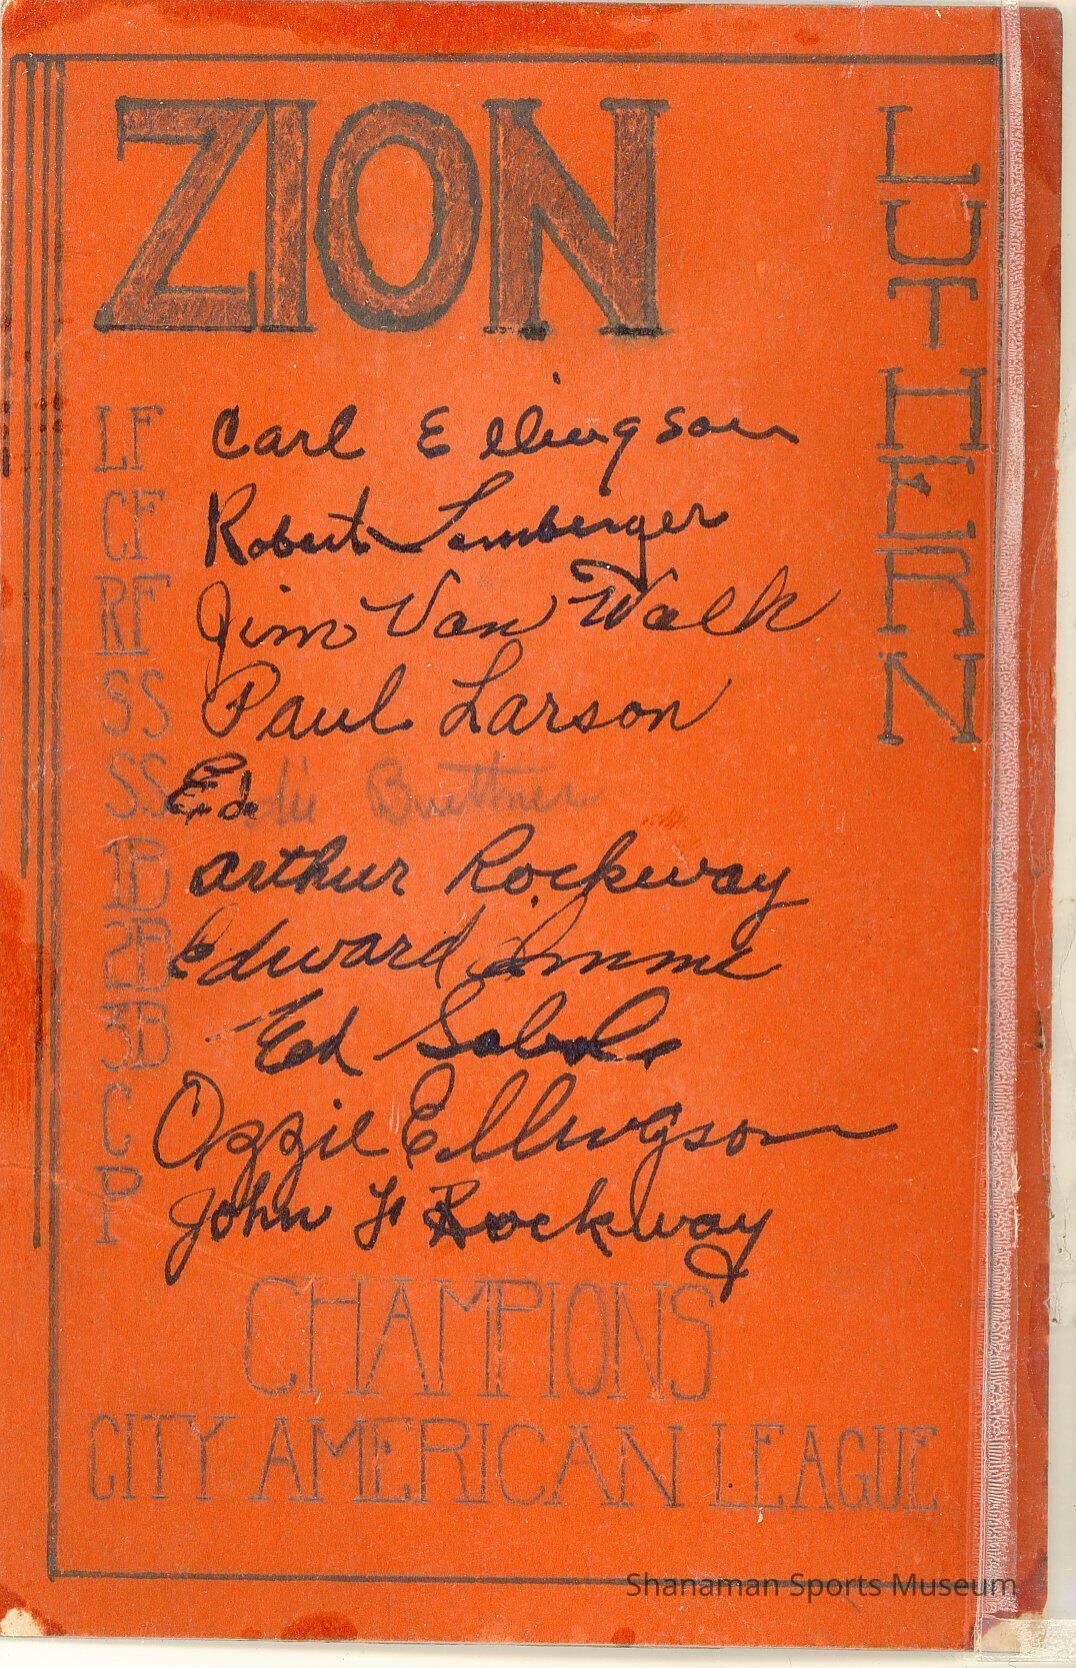 ZION
LUTHERN
LF Carl Ellingson
CF Robert Lemberger
RF Jim Van Walk
SS Paul Larson
SS Eddie Buettner
1B Arthur Rockway
2B Edward Imme
3B Ed
C Ozzie Ellingson
P John F Rockway
CHAMPIONS
CITY AMERICAN LEAGUE
Shanaman Sports Museum